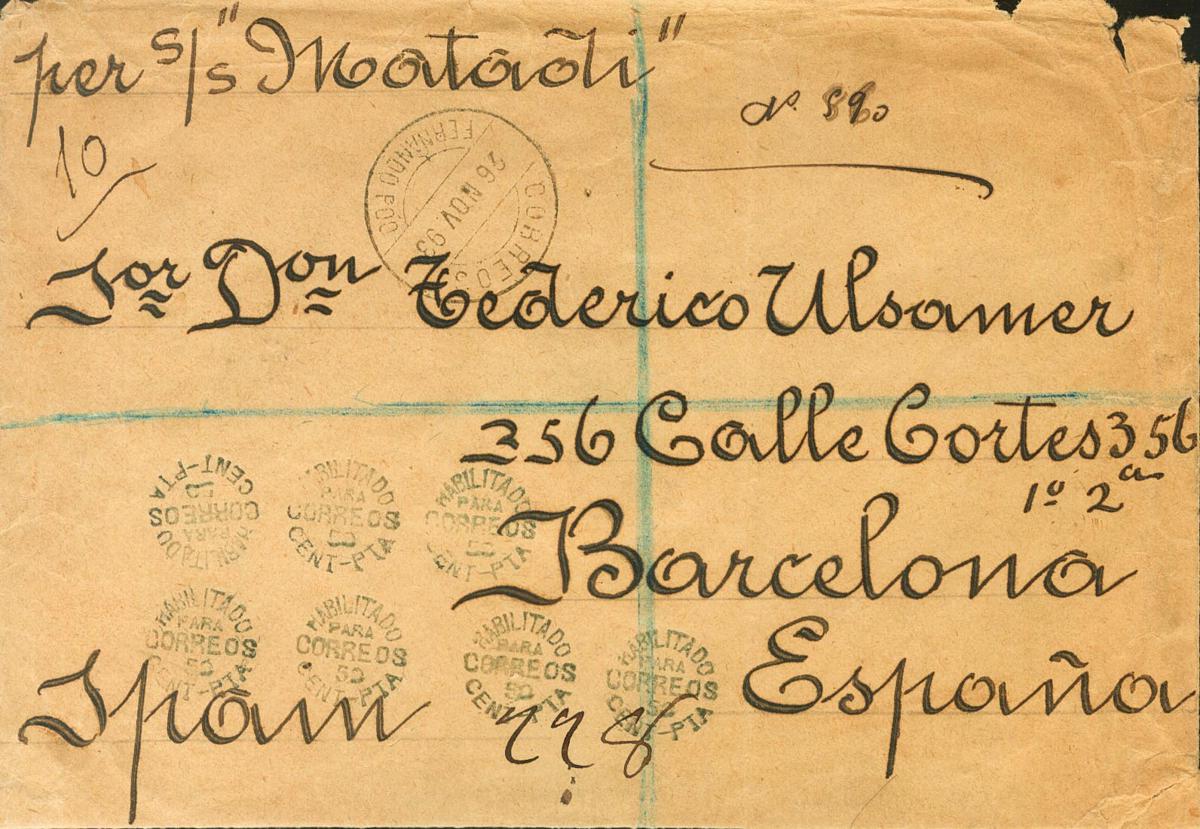 per s/s "Matadi"
10
Nº 890
CORREOS
26 NOV. 93
FERNANDO POO
Sor Don Federico Ulsamer
256 Calle Cortes 356
1º 2ª
Barcelona
España
Spain
778
HABILITADO PARA CORREOS 50 CENT-PTA
HABILITADO PARA CORREOS 50 CENT-PTA
HABILITADO PARA CORREOS 50 CENT-PTA
HABILITADO PARA CORREOS 50 CENT-PTA
HABILITADO PARA CORREOS 50 CENT-PTA
HABILITADO PARA CORREOS 50 CENT-PTA
HABILITADO PARA CORREOS 50 CENT-PTA